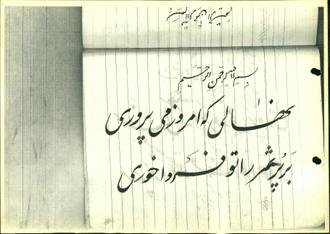 بسم الله الرحمن الرحیم
نهالی که امروز می پروری
بر پر ثمر را تو فردا خوری